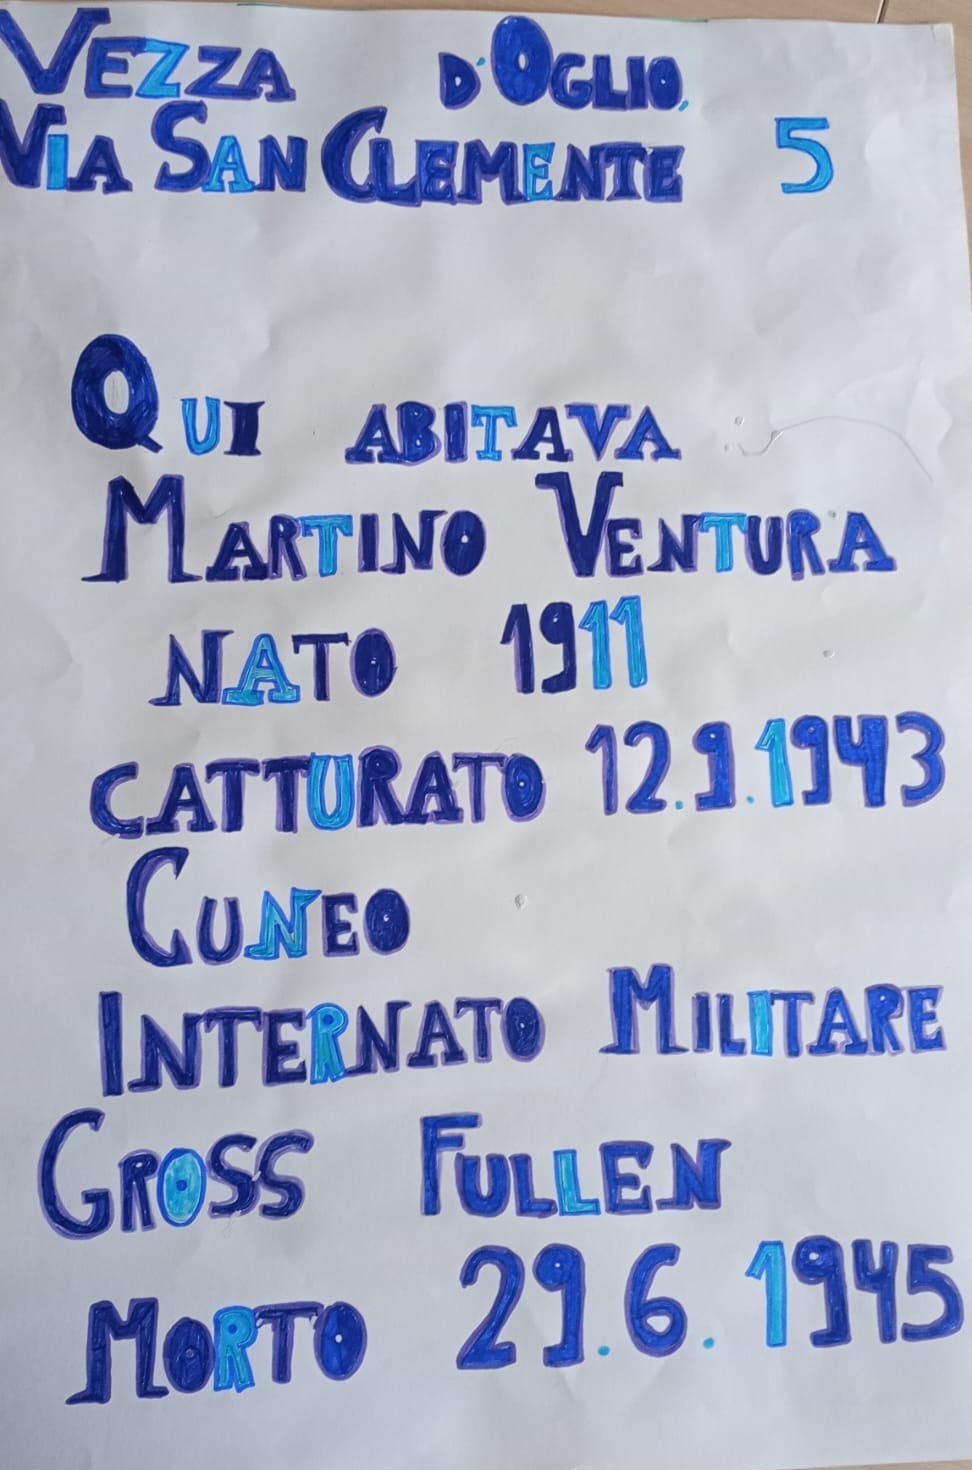 Vezza d'Oglio,
Via San Clemente 5
Qui abitava
Martino Ventura
nato 1911
catturato 12.9.1943
Cuneo
Internato Militare
Gross Fullen
Morto 29.6.1945